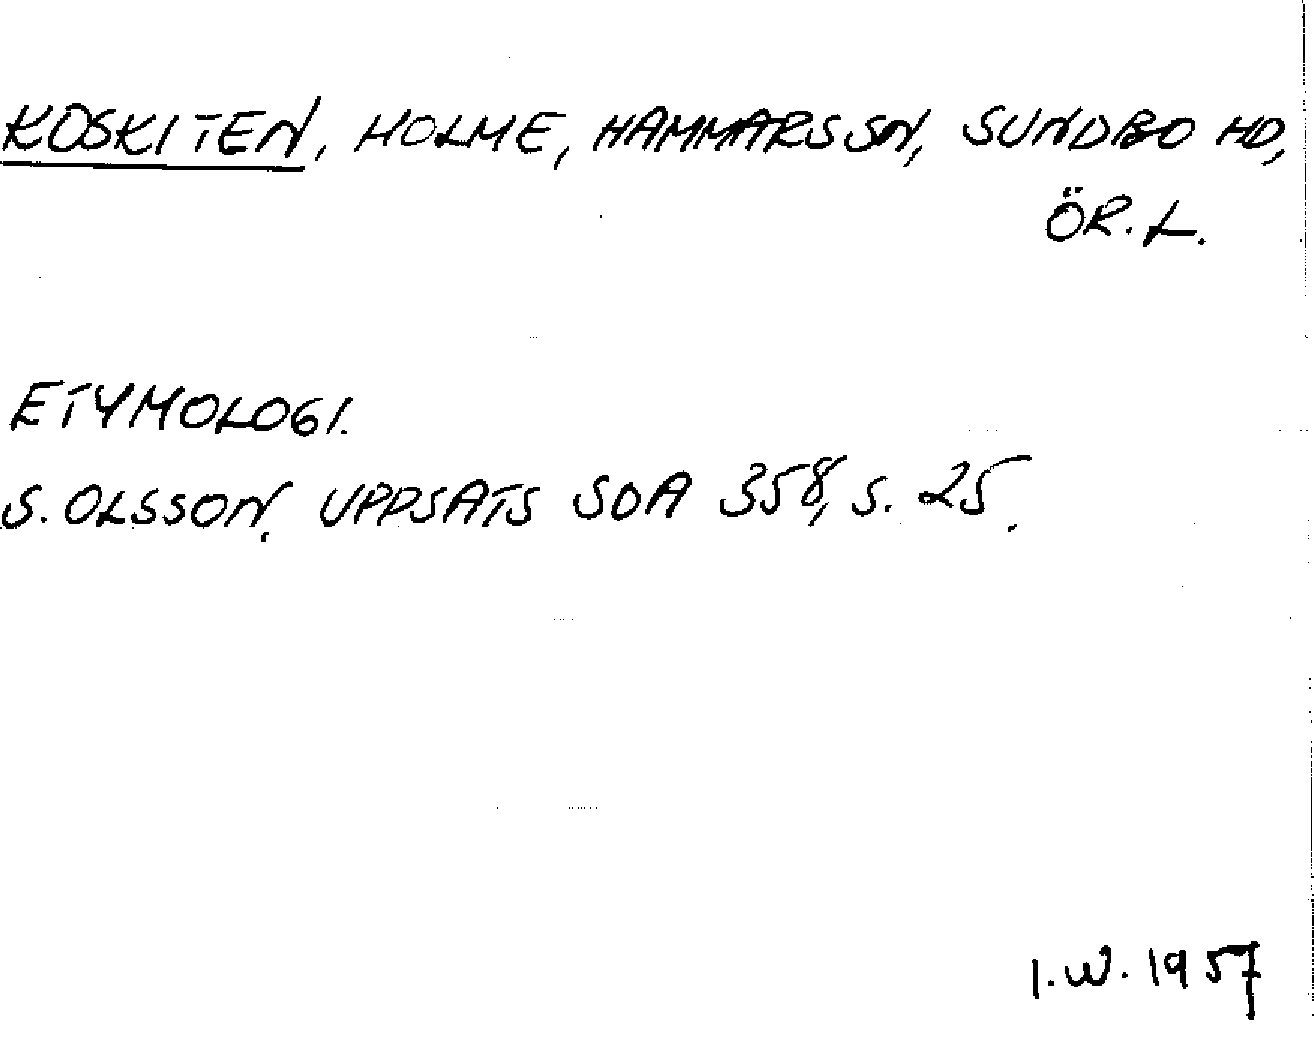 KOSKITEN, HOLME, HAMMARS SN, SUNDBO HD,
ÖR. L.
ETYMOLOGI.
S. OLSSON. UPPSATS SOA 358, S. 25.
I. W. 1957